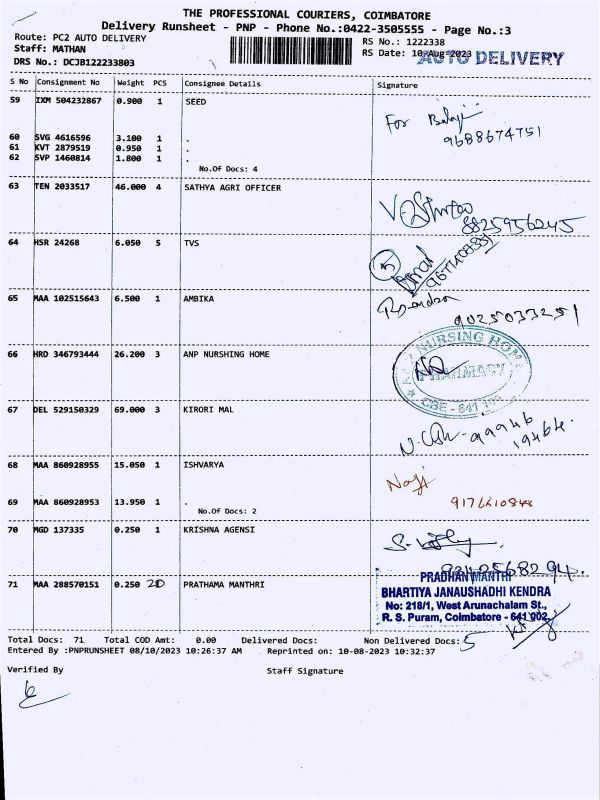 THE PROFESSIONAL COURIERS, COIMBATORE
Delivery Runsheet - PNP - Phone No.:0422-3505555 - Page No.:3
Route: PC2 AUTO DELIVERY
RS No.: 1222338
Staff: MATHAN
RS Date: 10-Aug-2023 AUTO DELIVERY
DRS No.: DCJB122233803
S No Consignment No Weight PCS Consignee Details Signature
59 IXM 504232867 0.900 1 SEED
For Balaji
9688674751
60 SVG 4616596 3.100 1 .
61 KVT 2879519 0.950 1 .
62 SVP 1460814 1.800 1 .
No.Of Docs: 4
63 TEN 2033517 46.000 4 SATHYA AGRI OFFICER
8825956245
64 HSR 24268 6.050 5 TVS
65 MAA 102515643 6.500 1 AMBIKA
9025033251
66 HRD 346793444 26.200 3 ANP NURSHING HOME
NURSING HOME
PHARMACY
CBE - 641
67 DEL 529150329 69.000 3 KIRORI MAL
99946
19464.
68 MAA 860928955 15.050 1 ISHVARYA
Naji
69 MAA 860928953 13.950 1 .
9176610848
No.Of Docs: 2
70 MGD 137335 0.250 1 KRISHNA AGENSI
71 MAA 288570151 0.250 20 PRATHAMA MANTHRI
PRADHAN MANTHI
BHARTIYA JANAUSHADHI KENDRA
No: 218/1, West Arunachalam St.,
R. S. Puram, Coimbatore - 641 002.
Total Docs: 71 Total COD Amt: 0.00 Delivered Docs: Non Delivered Docs: 5
Entered By :PNPRUNSHEET 08/10/2023 10:26:37 AM Reprinted on: 10-08-2023 10:32:37
Verified By Staff Signature